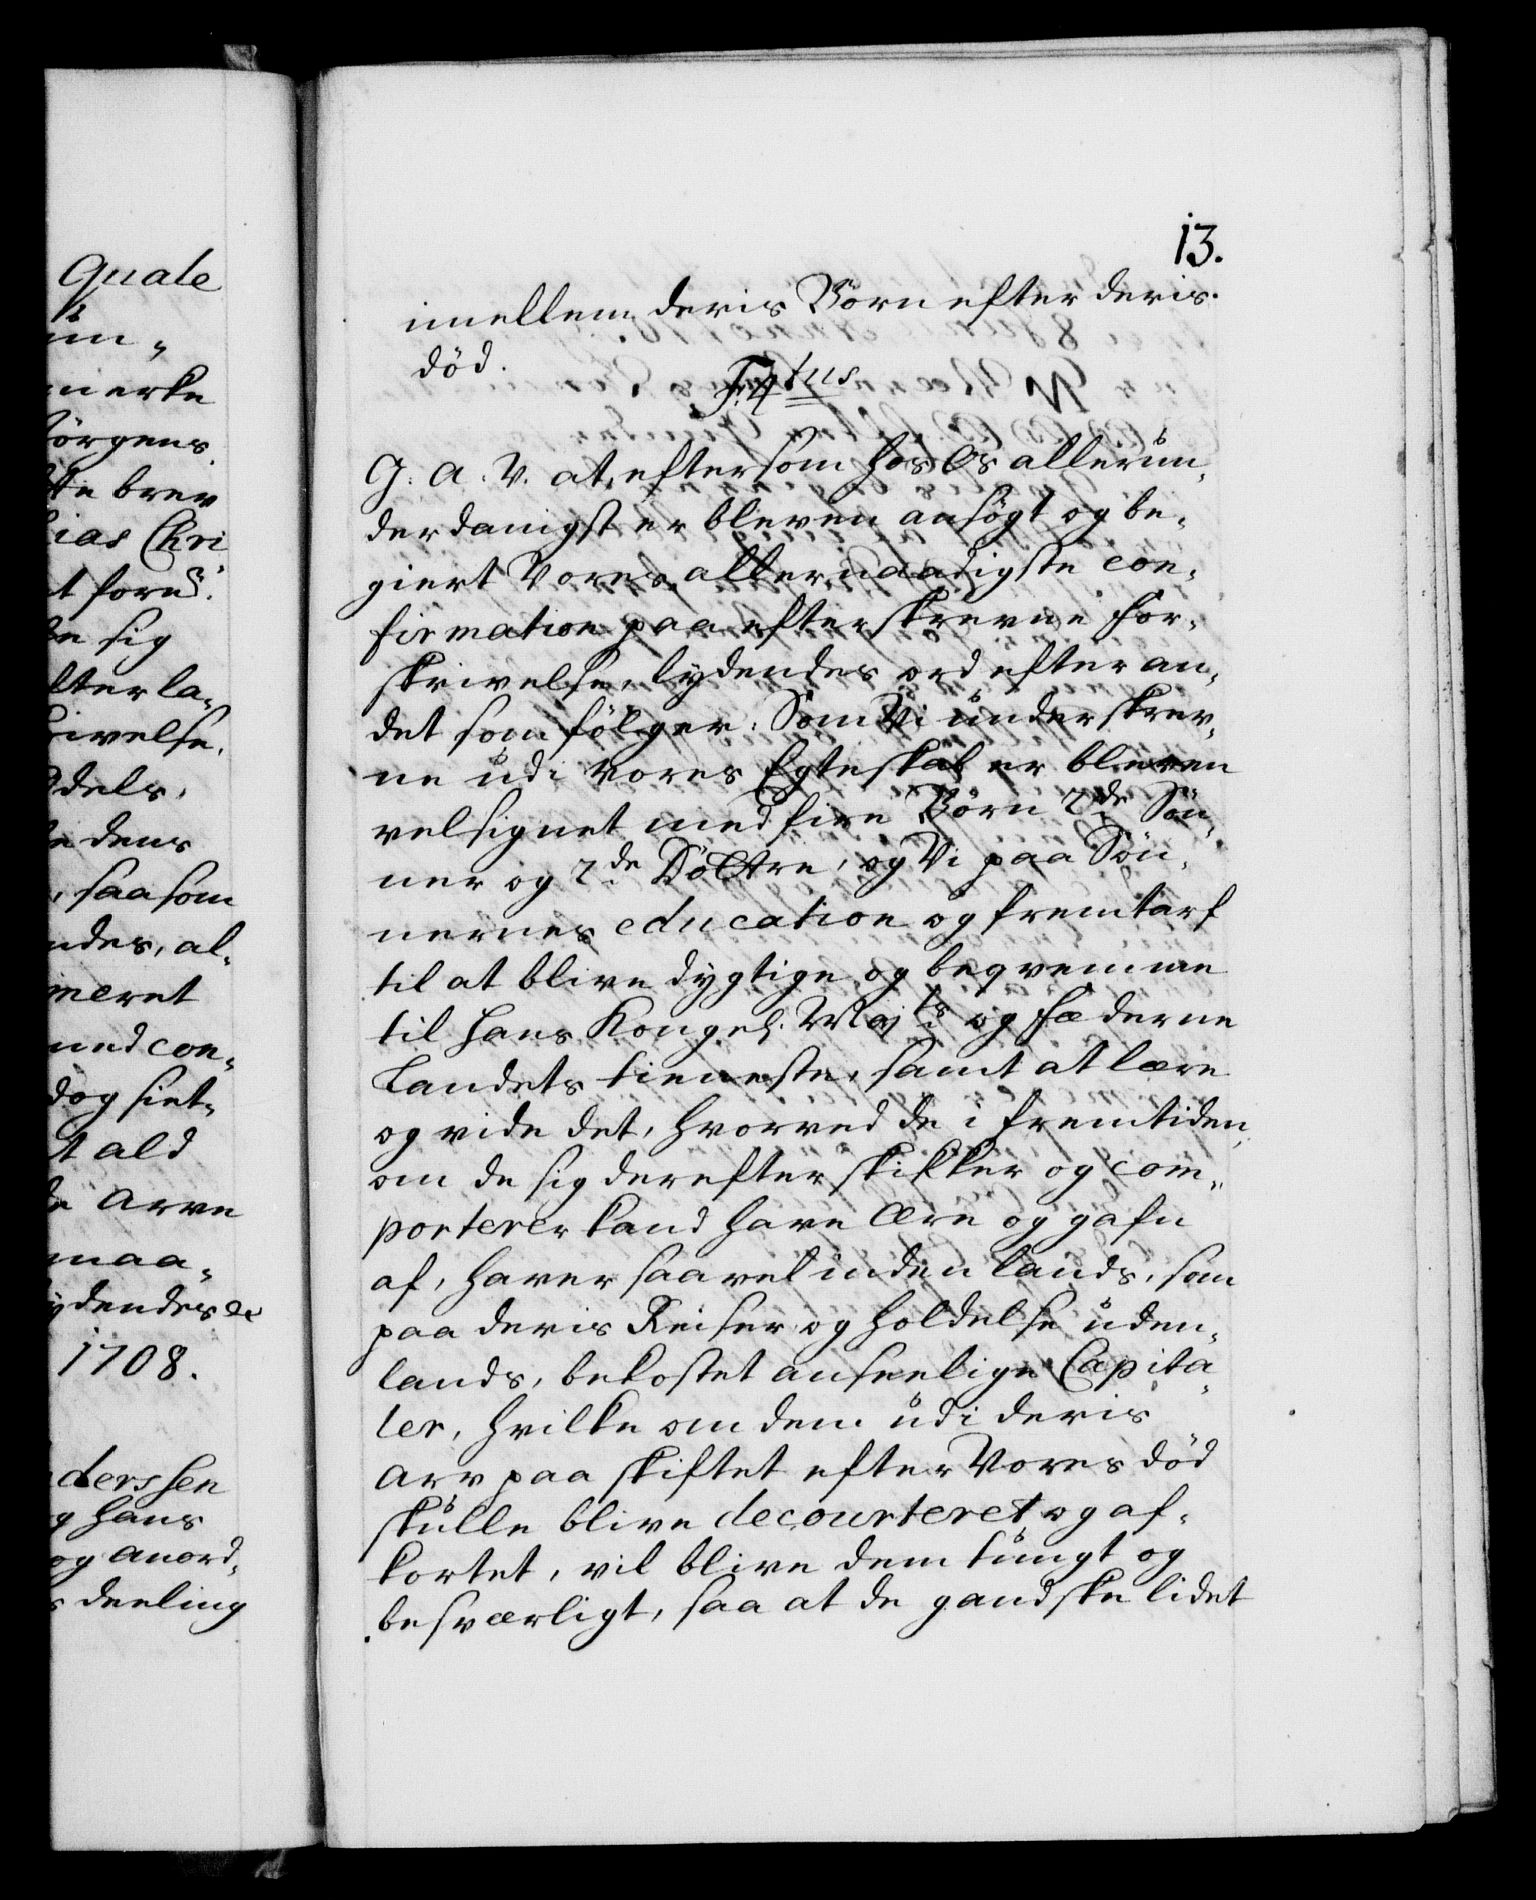 Quale
ün-
mercke
Jörgens
tte brev
ias Chri
t forñ.
de sig
lter la-
rivelse,
Odels,
e dens
, saasom
ndes, al-
meret
med con-
dog siet-
t ald
de Arve
maa-
ydendes &c
1708.
derssen
g Hans
og Anord-
s deeling
13.
imellem deris Börn efter deris
död.
F. 4tus
G. A. V. at eftersom hos Os allerün-
derdanigst er bleven ansögt og be-
giert Vores allernaadigste con-
firmation paa efterskrevne for-
skrivelse, lydendes ord efter an-
det som fölger: Som Vi ünderskrev-
ne üdi vores Egteskab er bleven
velsignet med fire Börn 2de Sön-
ner og 2de Döttre, og Vi paa Sön-
nernes education og fremtarf
til at blive dygtige og beqvemme
til Hans Kongel. Majts og Fæderne
Landets tieneste, samt at lære
og vide det, hvorved de i fremtiden,
om de sig derefter skikker og com-
porterer kand have Ære og gafn
af, haver saavel inden lands, som
paa deris Reiser og holdelse üden-
lands, bekostet anseelige Capita-
ler, hvilke om dem üdi deris
Arv paa skiftet efter Vores död
skülle blive decourteret og af-
kortet, vil blive dem tüngt og
besværligt, saa at de gandske lidet